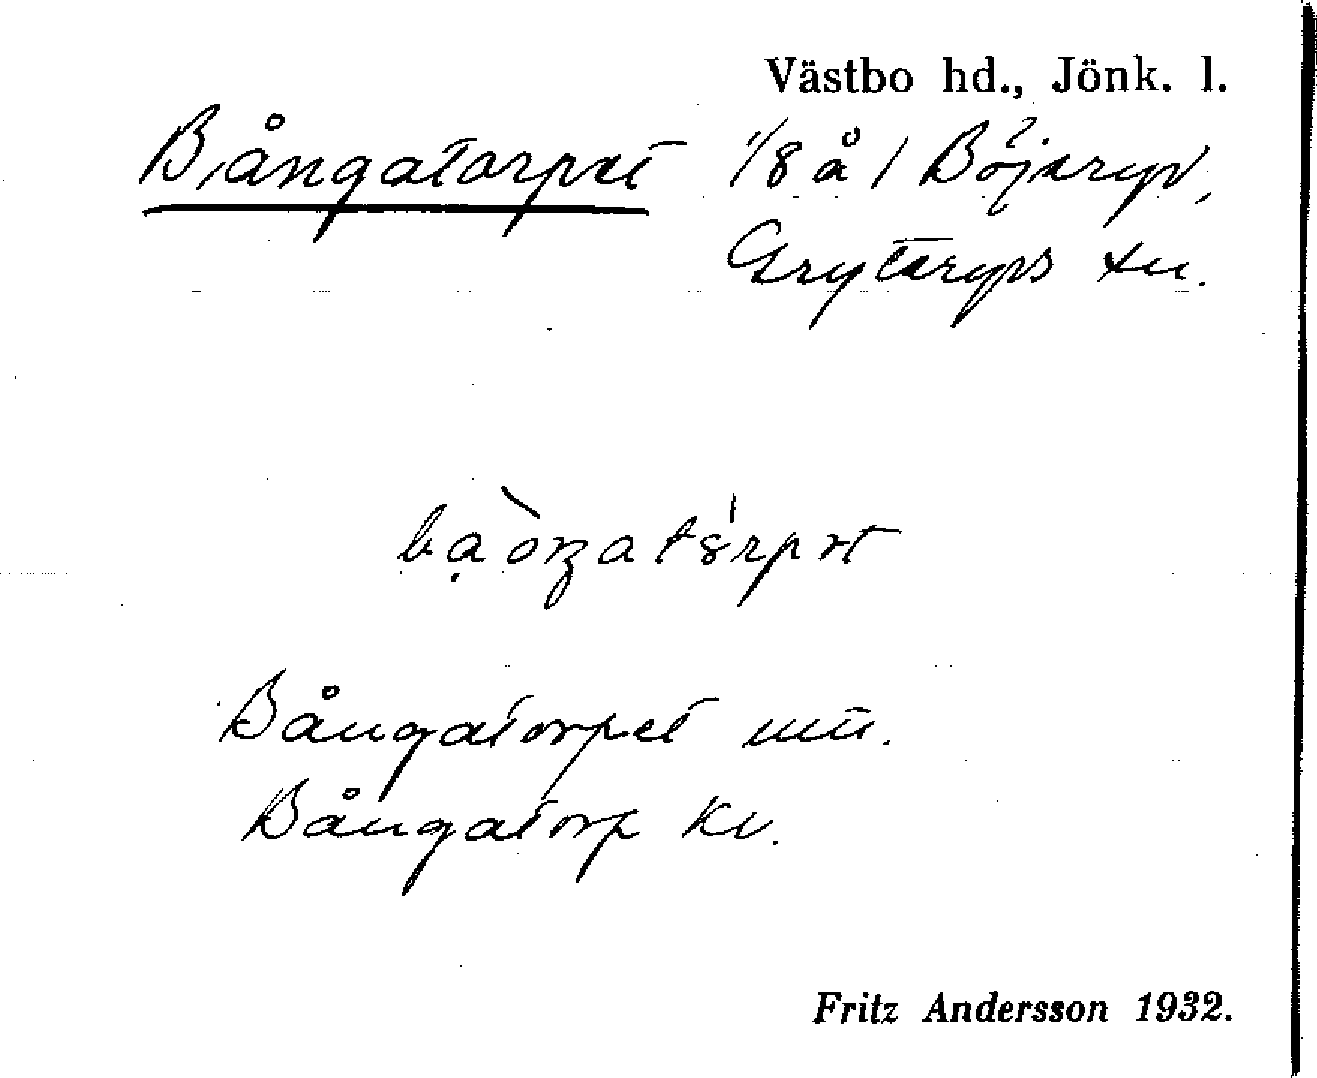 Västbo hd., Jönk. l.
Bångatorpet 1/8 å 1 Böjeryd,
Gryteryds sn.
Bångatorpet mtl.
Bångatorp Kv.
Fritz Andersson 1932.